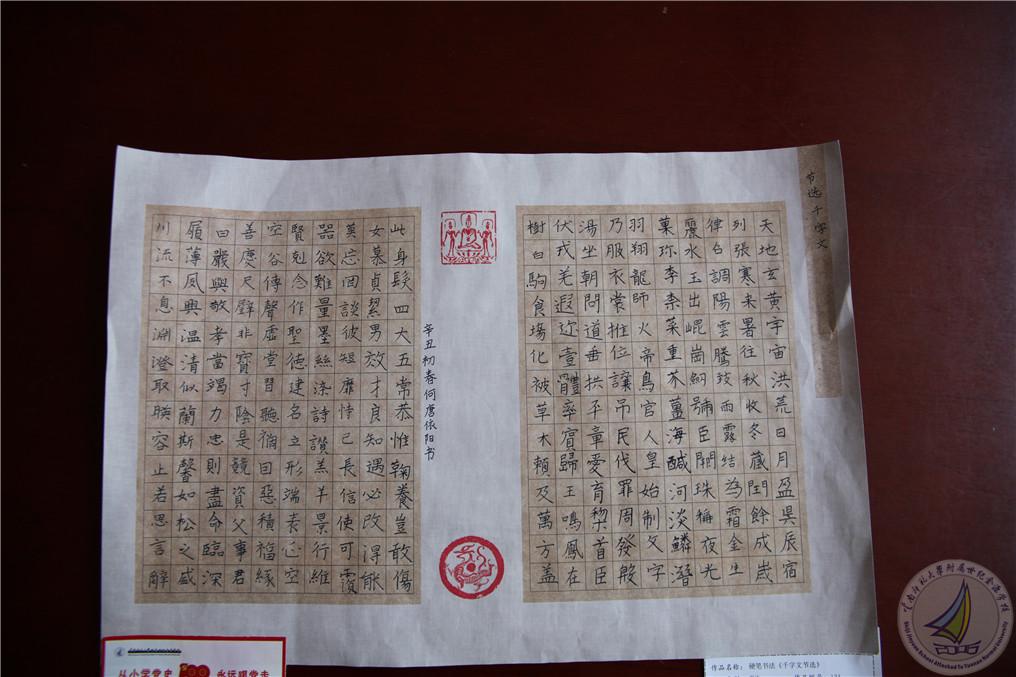 节选千字文
天地玄黄宇宙洪荒日月盈昃辰宿
列張寒来暑往秋收冬蔵閏餘成歲
律吕調陽雲騰致雨露结為霜金生
麗水玉出崐崗劒號臣闕珠稱夜光
菓珍李柰菜重芥薑海鹹河淡鱗潛
羽翔龍師火帝鳥官人皇始制文字
乃服衣裳推位讓吊民伐罪周發殷
湯坐朝問道垂拱平章愛育黎首臣
伏戎羌遐迩壹體率賓歸王鳴鳳在
樹白駒食場化被草木賴及萬方蓋
辛丑初春何唐依阳书
此身髮四大五常恭惟鞠養豈敢傷
女慕貞絜男效才良知過必改得能
莫忘罔談彼短靡恃己長信使可覆
器欲難量墨絲染詩讚羔羊景行維
賢剋念作聖德建名立形端表正空
空谷傳聲虛堂習聽禍因惡積福緣
善慶尺璧非寶寸陰是競資父事君
曰嚴與敬孝當竭力忠則盡命臨深
履薄夙興温清似蘭斯馨如松之盛
川流不息淵澄取暎容止若思言辭
从小学党史 永远跟党走
作品名称：硬笔书法《千字文节选》
云南师范大学附属世纪金源学校
Shiji Jinyuan School Attached To Yunnan Normal University